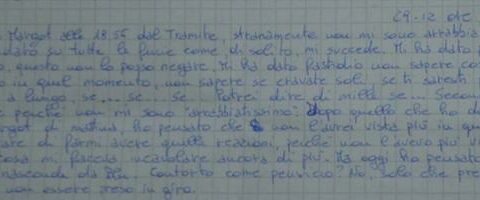 29.12 ore
Margot alle 18.56 dal Tramite, stranamente non mi sono arrabbia
dato su tutte le furie come di solito mi succede. Mi ha dato
questo non lo posso negare. Mi ha dato fastidio non sapere co
in quel momento, non sapere se eravate soli, se ti saresti
a lungo, se... se... se... Potrei dire di mille se... Secon
perché non mi sono "arrabbiatissimo". Dopo quello che ho d
got di mattina, ho pensato che non l'avrei vista più in qu
are di farmi avere quella reazioni, perché non l'avevo più vi
cosa mi faccia incavolare ancora di più. Ma oggi ho pensato
nasconde da Contorto come pensiero? No, solo che pre
non essere preso in giro.